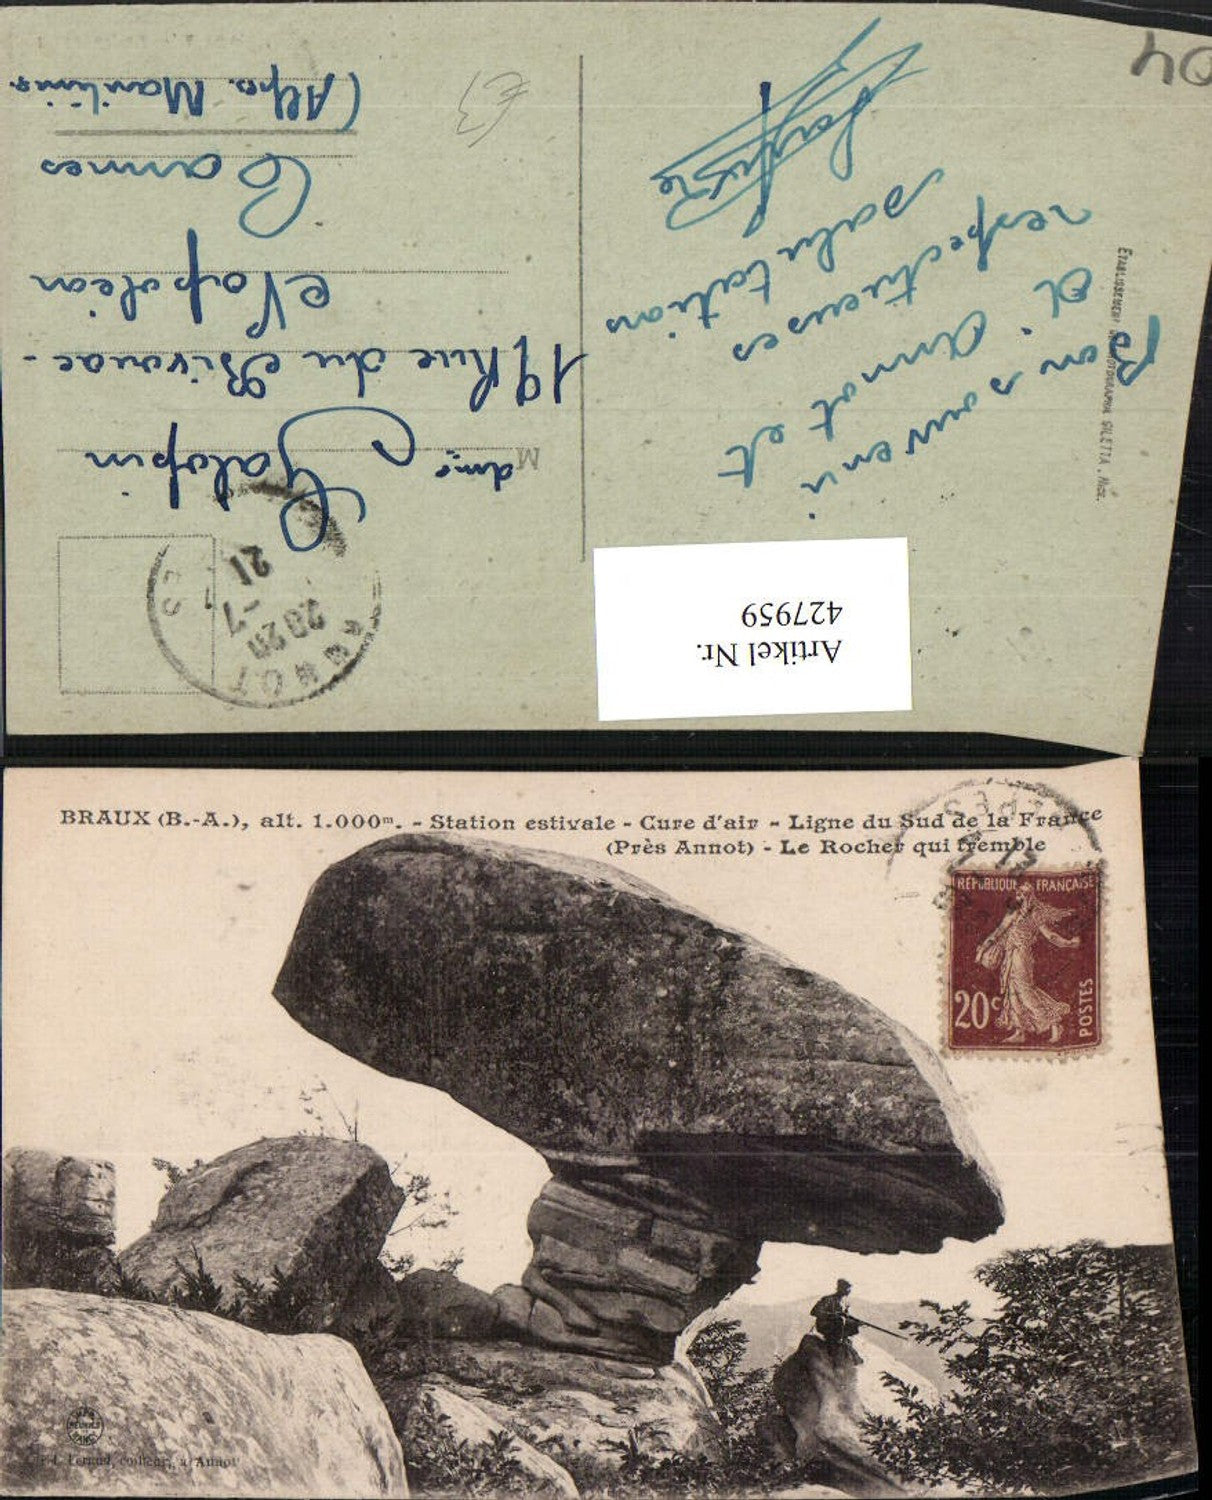 Artikel Nr.
427959
ANNOT
20 20
-7
21
Bon souvenir
d'Annot et
respectueuses
salutations
ETABLISSEMENT PHOTOGRAPHIE GILETTA, NICE.
M dme Galopin
19 Rue du Bivouac -
Napoléon
Cannes
(Alpes. Maritimes
04
€3
BRAUX (B.-A.), alt. 1.000m. - Station estivale - Cure d'air - Ligne du Sud de la France
(Près Annot) - Le Rocher qui tremble
RÉPUBLIQUE FRANÇAISE
20c
POSTES
coiffeur, à Annot